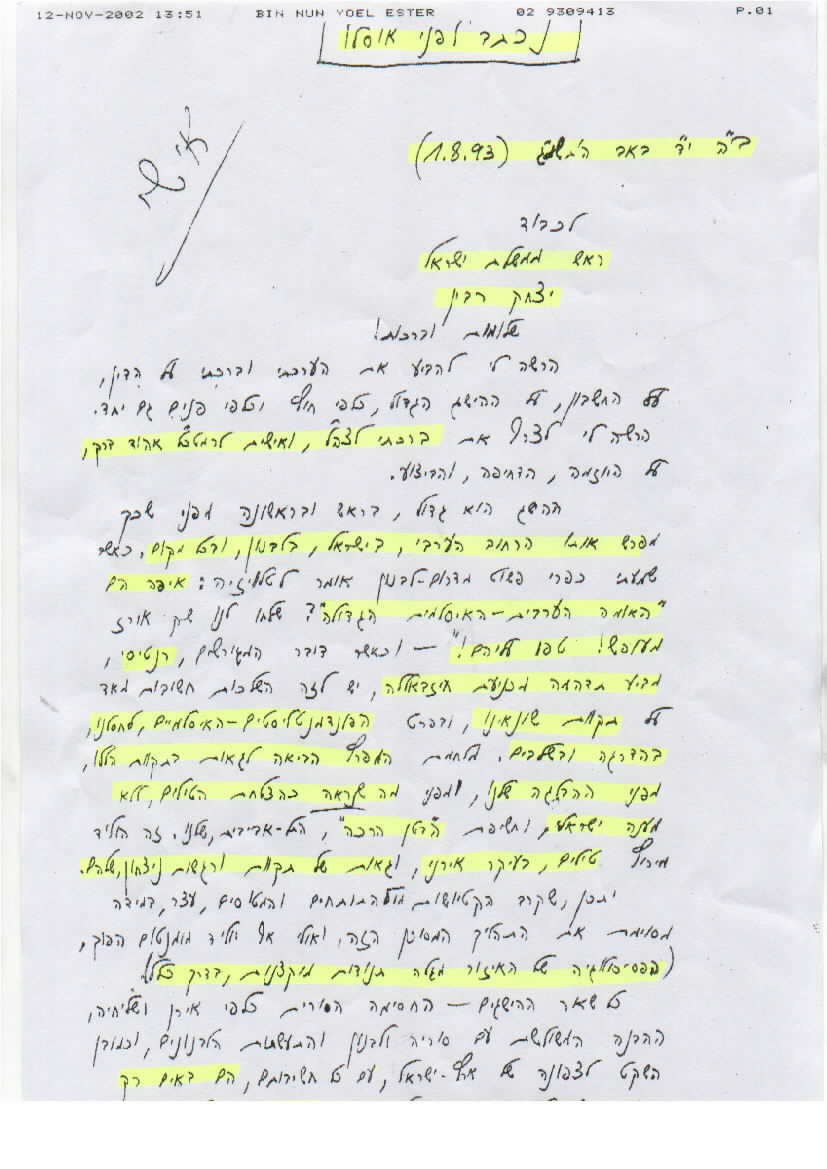 12-NOV-2002 13:51 BIN NUN YOEL ESTER 02 9309413 P.01
נכתב לפני אוסלו
ב"ה י"ד באב ה'תשנ"ג (1.8.93)
אישי
לכבוד
ראש ממשלת ישראל
יצחק רבין
שלומות וברכות!
הרשה לי להביע את הערכתי וברכתי על הדין,
על החשבון, על ההישג הגדול, כלפי חוץ וכלפי פנים גם יחד.
הרשה לי לצרף את ברכתי לצה"ל, ואישית לרמטכ"ל אהוד ברק,
על היוזמה, הדחיפה, והביצוע.
ההישג הוא גדול, בראש ובראשונה מפני שכך
מפרש אותו הרחוב הערבי, בישראל, בלבנון, ובכל מקום. כאשר
שמעתי כפרי פשוט מדרום-לבנון אומר לטלויזיה: איפה הם
"האומה הערבית-האיסלמית הגדולה"? שלחו לנו שק אורז
מעופש! טפו עליהם!" – וכאשר דובר המגורשים, רנטיסי,
מביע תדהמה מכניעת חיזבאללה, יש לזה השלכות חשובות מאד
על תקוות שונאינו, ובפרט הפונדמנטליסטים-האיסלמיים, לחסלנו,
בהדרגה ובשלבים. מלחמת המפרץ הביאה לגאות בתקוות הללו,
מפני ההבלגה שלנו, ומפני מה שנראה כהצלחת הטילים, ללא
מענה ישראלי, וחשיפת "הבטן הרכה", התל-אביבית, שלנו. זה הוליד
מירוץ טילים, בעיקר אירני, וגאות של תקוות ורגשות ניצחון, שלהם.
יתכן, שקרב הקטיושות מול התותחים והמטוסים, עצר, במידה
מסוימת את התהליך המסוכן הזה, ואולי אף יוליד מומנטום הפוך,
(הפסיכולוגיה של האיזור מגלה תנודות מוקצנות, בדרך כלל)
כל שאר ההישגים – החסימה הסורית כלפי אירן ושליחיה,
ההבנה המשולשת עם סוריה ולבנון והתעשתות הלבנונים, וכמובן
השקט לצפונה של ארץ-ישראל, עם כל חשיבותם, הם באים רק